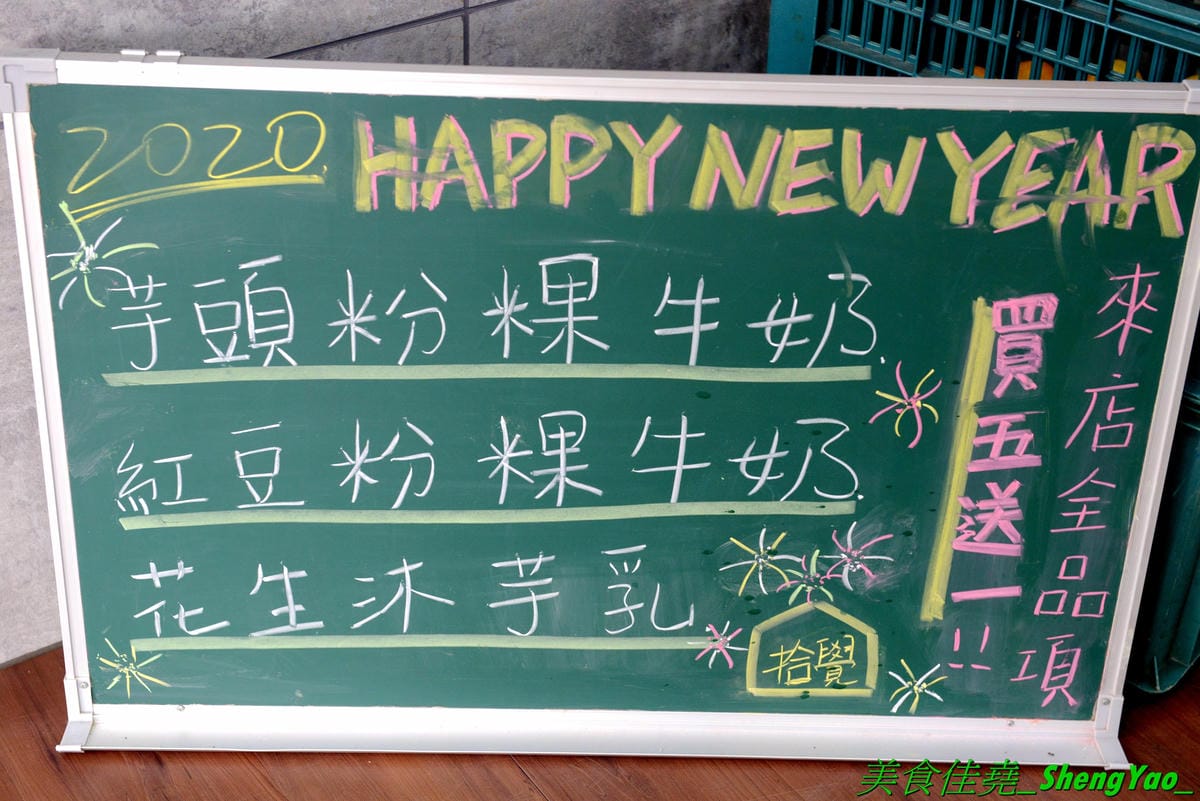 2020. HAPPY NEW YEAR
芋頭粉粿牛奶.
紅豆粉粿牛奶.
花生沐芋乳
來店全品項
買五送一!!
拾覺
美食佳堯_ShengYao_